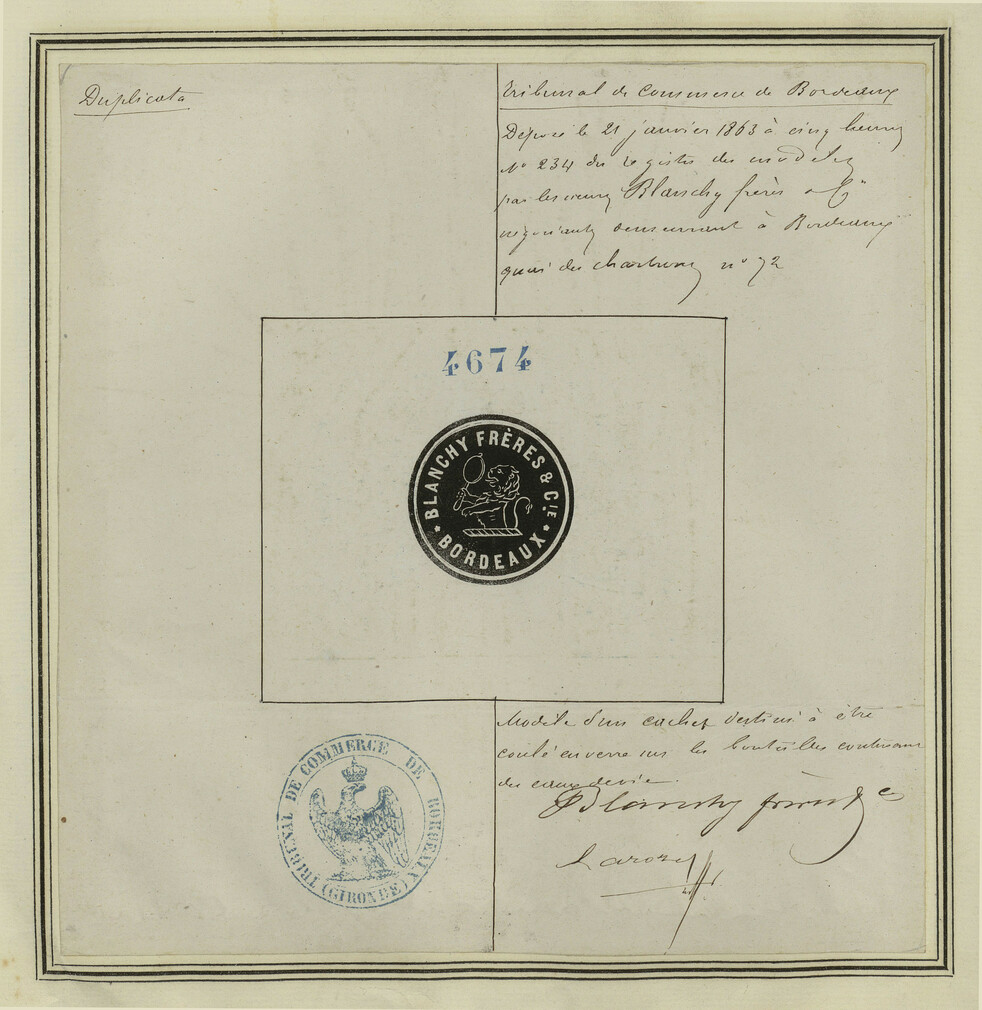 Duplicata
Tribunal de Commerce de Bordeaux
Déposé le 21 janvier 1863 à cinq heures
N° 234 du registre des modèles
par les sieurs Blanchy frères & Cie
négociants demeurant à Bordeaux
quai des chartrons n° 72
4674
BLANCHY FRÈRES & CIE
BORDEAUX
Modèle d'un cachet destiné à être
coulé en verre sur les bouteilles contenant
des eaux de vie.
Blanchy frères & Ce
TRIBUNAL DE COMMERCE DE BORDEAUX
(GIRONDE)